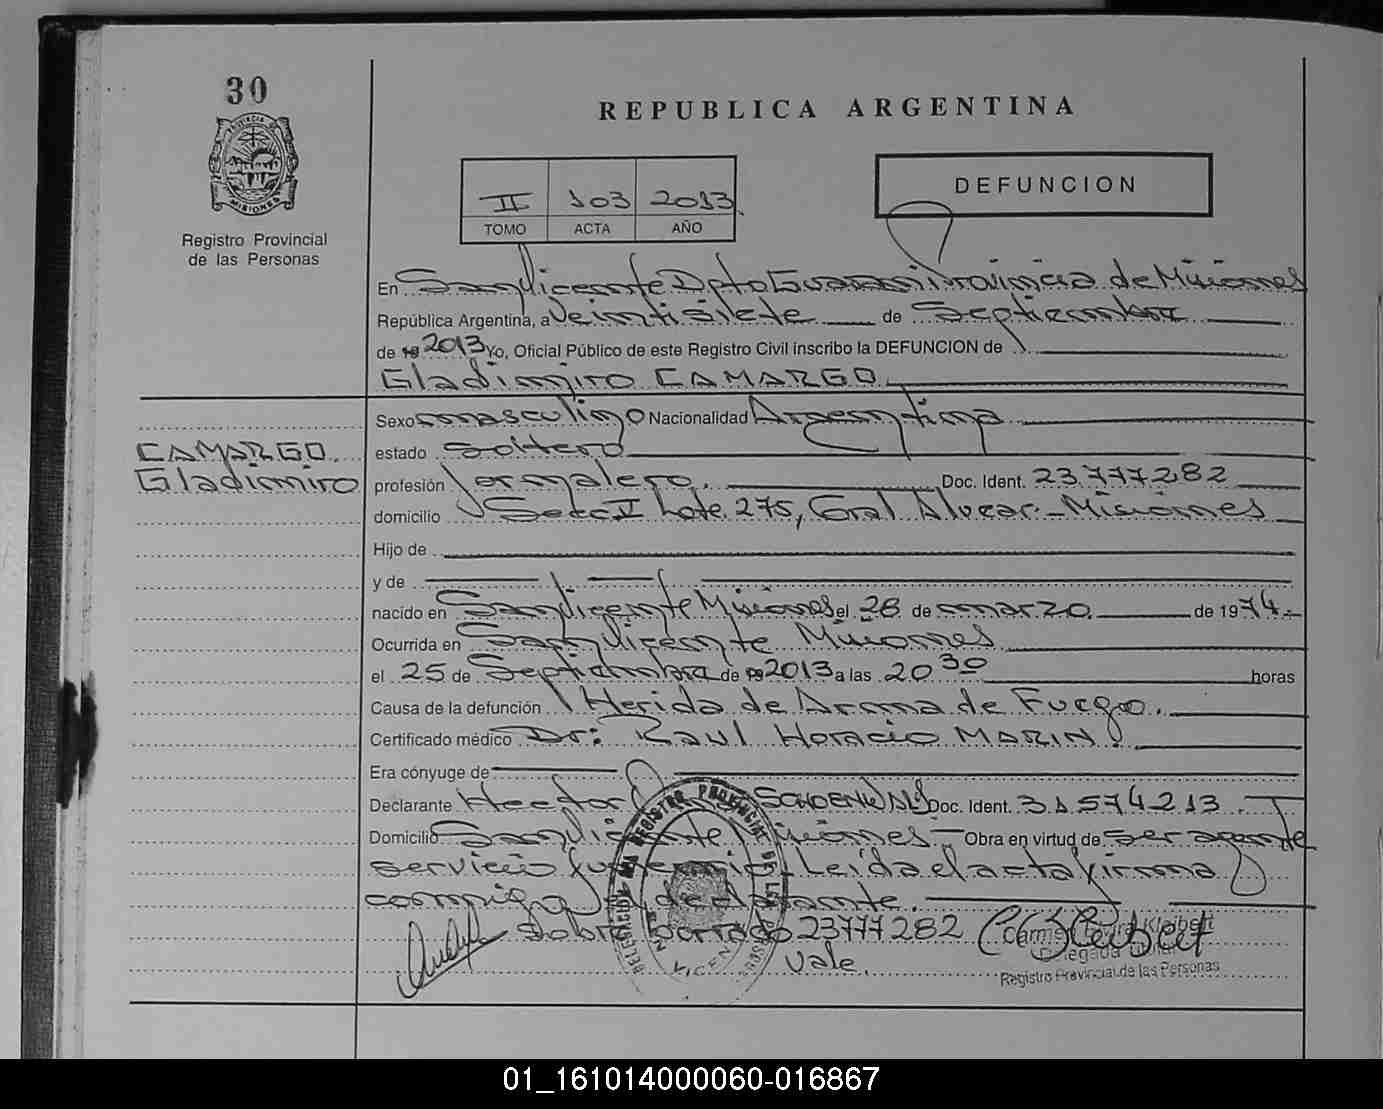 30
REPUBLICA ARGENTINA
PROVINCIA DE
MISIONES
Registro Provincial
de las Personas
DEFUNCION
II 103 2013
TOMO ACTA AÑO
En San Vicente Dpto Guarani Provincia de Misiones
República Argentina, a Veintisiete de Septiembre
de 19 2013 Yo, Oficial Público de este Registro Civil inscribo la DEFUNCION de
Gladimiro CAMARGO
CAMARGO
Gladimiro
Sexo masculino Nacionalidad Argentina
estado Soltero
profesión Jornalero. Doc. Ident. 23.777.282
domicilio Secc II Lote 275, Gral Alvear - Misiones
Hijo de
y de
nacido en San Vicente Misiones el 28 de marzo de 1974.
Ocurrida en San Vicente Misiones
el 25 de Septiembre de 19 2013 a las 20 30 horas
Causa de la defunción Herida de Arma de Fuego.
Certificado médico Dr: Raul Horacio MARIN.
Era cónyuge de
Declarante Hector Doc. Ident. 31574213
Domicilio San Vicente Misiones - Obra en virtud de ser agente
servicio funerario. Leida el acta firma
conmigo el declarante.
Sobre borrado 23777282
Vale.
Delegada
Registro Provincial de las Personas
REGISTRO PROVINCIAL DE LAS
01_161014000060-016867